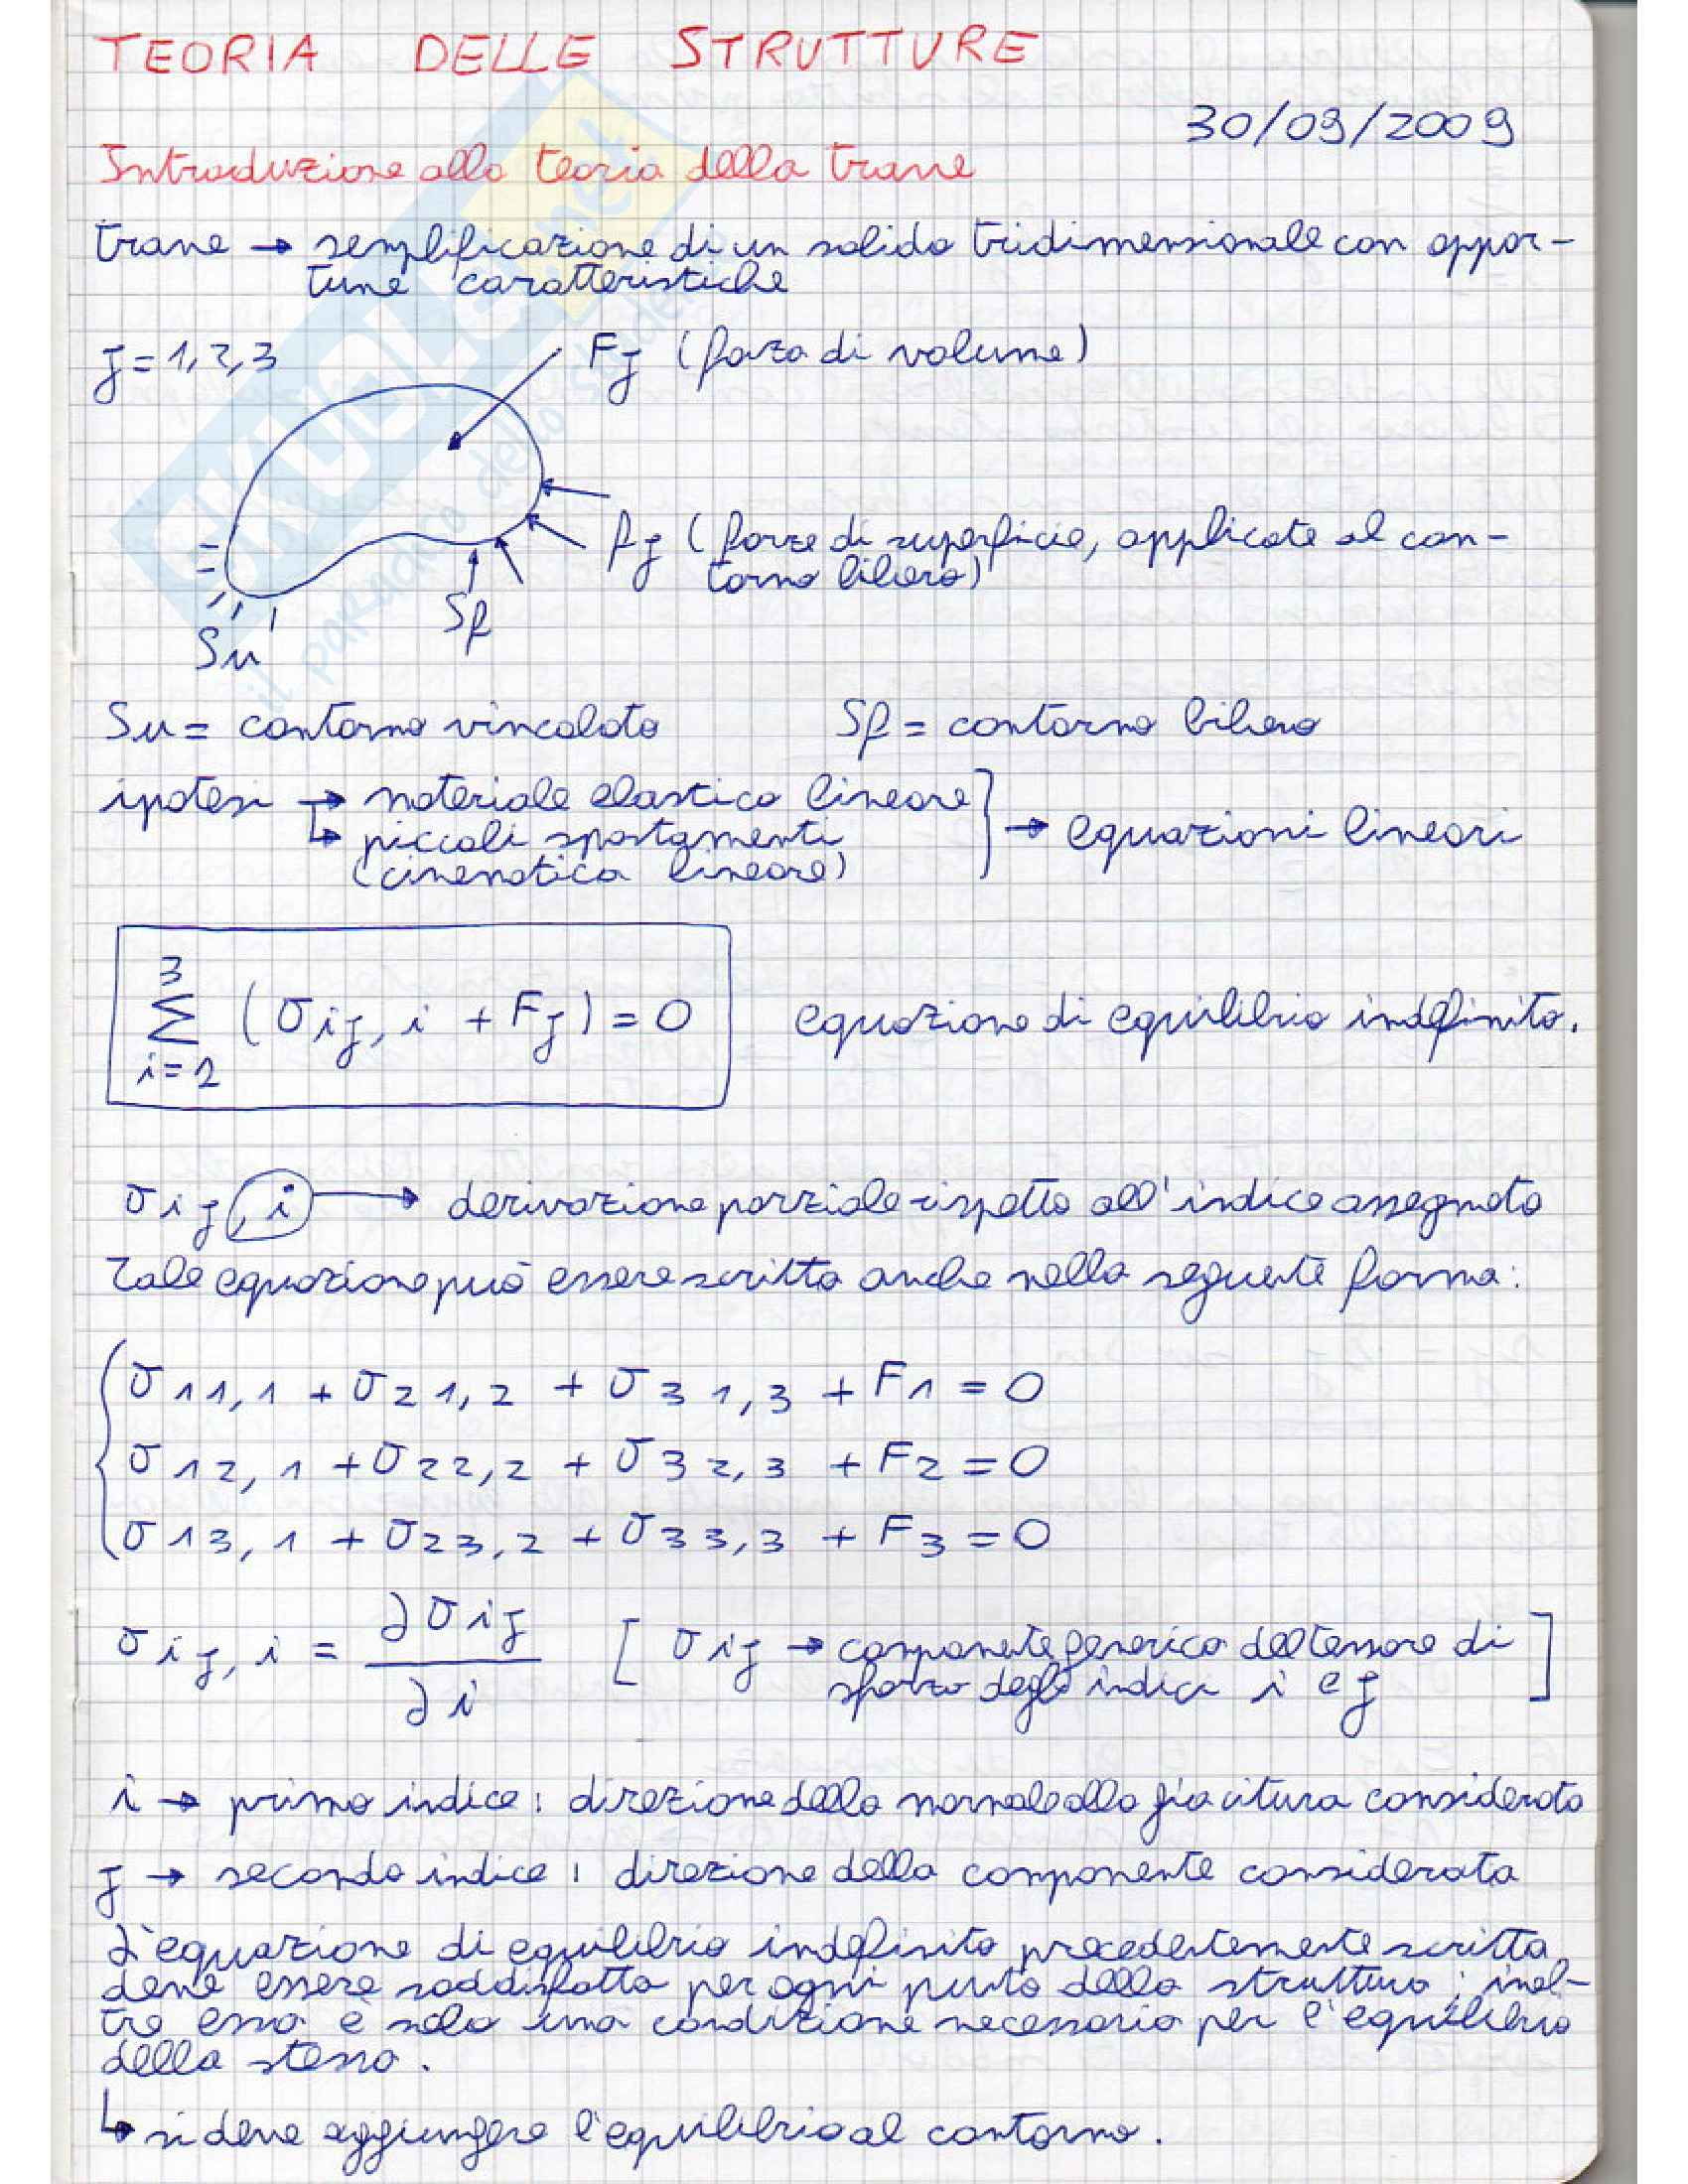 TEORIA DELLE STRUTTURE
30/09/2009
Introduzione alla teoria della trave
trave → semplificazione di un solido tridimensionale con oppor-
tune caratteristiche
j = 1, 2, 3
Fj (forza di volume)
fj (forze di superficie, applicate al con-
torno libero)
Sf
Su
Su = contorno vincolato Sf = contorno libero
ipotesi → materiale elastico lineare
↳ piccoli spostamenti } → equazioni lineari
(cinematica lineare)
3
∑ (σij,i + Fj) = 0 equazione di equilibrio indefinito.
i=1
σij,i → derivazione parziale rispetto all'indice assegnato
Tale equazione può essere scritta anche nella seguente forma:
σ11,1 + σ21,2 + σ31,3 + F1 = 0
σ12,1 + σ22,2 + σ32,3 + F2 = 0
σ13,1 + σ23,2 + σ33,3 + F3 = 0
σij,i = ∂σij / ∂i [ σij → componente generica del tensore di
sforzo degli indici i e j ]
i → primo indice: direzione della normale alla giacitura considerata
j → secondo indice: direzione della componente considerata
L'equazione di equilibrio indefinito precedentemente scritta
deve essere soddisfatta per ogni punto della struttura; inol-
tre essa è solo una condizione necessaria per l'equilibrio
della stessa.
↳ si deve aggiungere l'equilibrio al contorno.